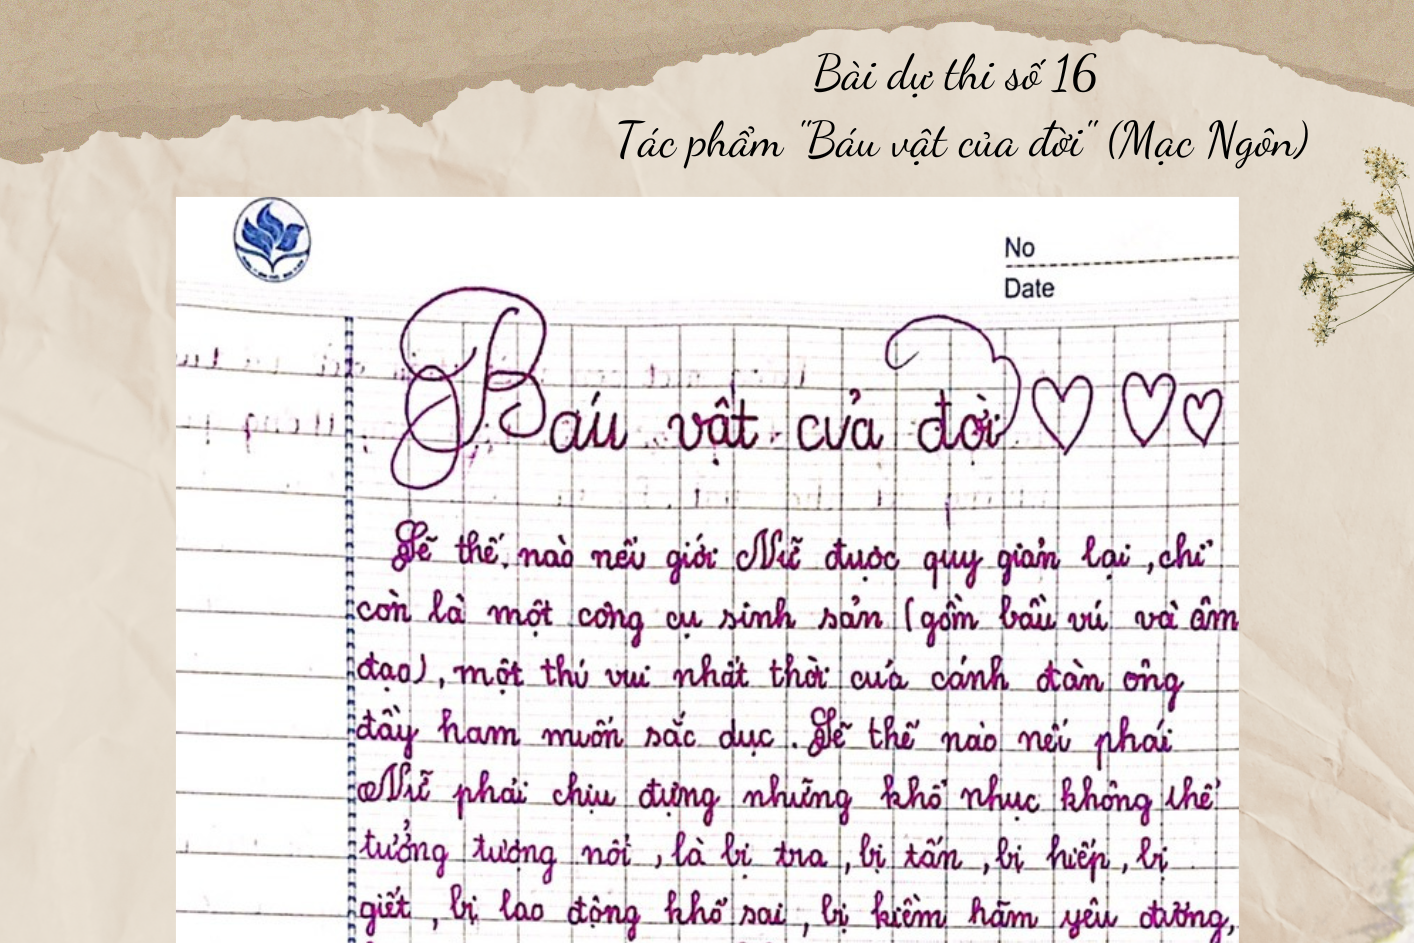 Bài dự thi số 16
Tác phẩm "Báu vật của đời" (Mạc Ngôn)
No
Date
Báu vật của đời
Sẽ thế nào nếu giới Nữ được quy giản lại, chỉ
còn là một công cụ sinh sản (gồm bầu vú và âm
đạo), một thú vui nhất thời của cánh đàn ông
đầy ham muốn sắc dục. Sẽ thế nào nếu phái
Nữ phải chịu đựng những khổ nhục không thể
tưởng tượng nổi, là bị tra, bị tấn, bị hiếp, bị
giết, bị lao động khổ sai, bị kiềm hãm yêu đương,